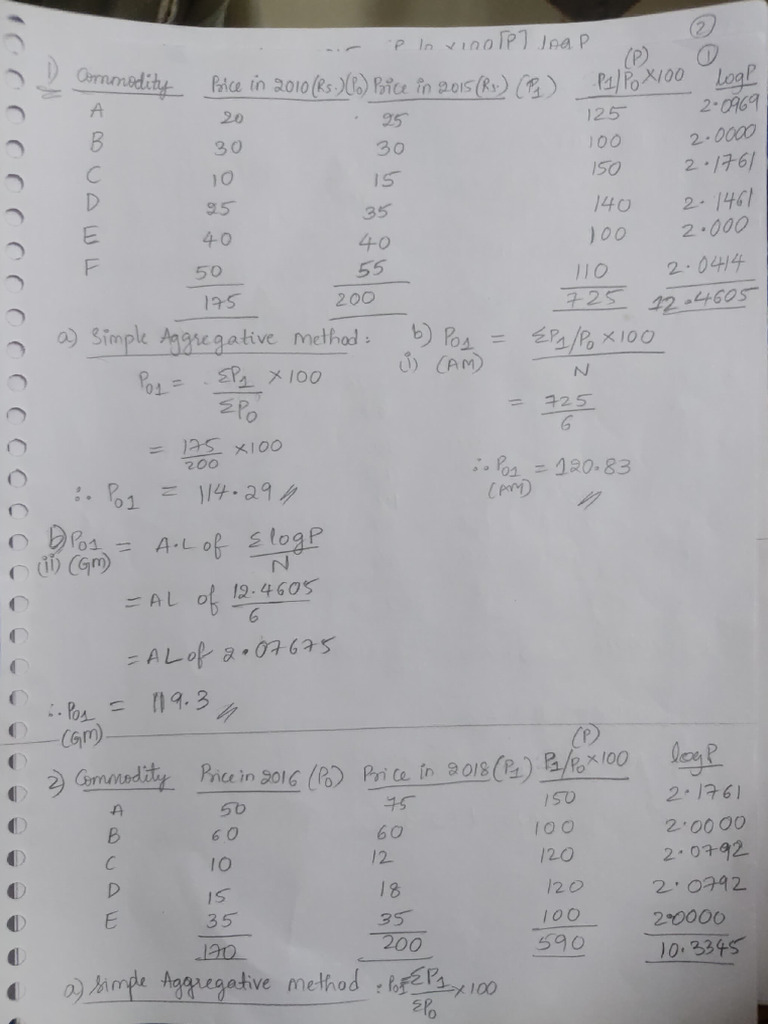 ②
P in × 100 [P] log P
①
1) Commodity Price in 2010 (Rs.) (P0) Price in 2015 (Rs.) (P1) (P) P1/P0 × 100 log P
A 20 25 125 2.0969
B 30 30 100 2.0000
C 10 15 150 2.1761
D 25 35 140 2.1461
E 40 40 100 2.000
F 50 55 110 2.0414
175 200 725 12.4605
a) Simple Aggregative method:
P01 = ΣP1/ΣP0 × 100
= 175/200 × 100
∴ P01 = 114.29 //
b) (i) P01 (AM) = ΣP1/P0 × 100 / N
= 725/6
∴ P01 (AM) = 120.83 //
b) (ii) P01 (GM) = A.L of Σ log P / N
= AL of 12.4605/6
= AL of 2.07675
∴ P01 (GM) = 119.3 //
2) Commodity Price in 2016 (P0) Price in 2018 (P1) (P) P1/P0 × 100 log P
A 50 75 150 2.1761
B 60 60 100 2.0000
C 10 12 120 2.0792
D 15 18 120 2.0792
E 35 35 100 2.0000
170 200 590 10.3345
a) Simple Aggregative method : P01 = ΣP1/ΣP0 × 100